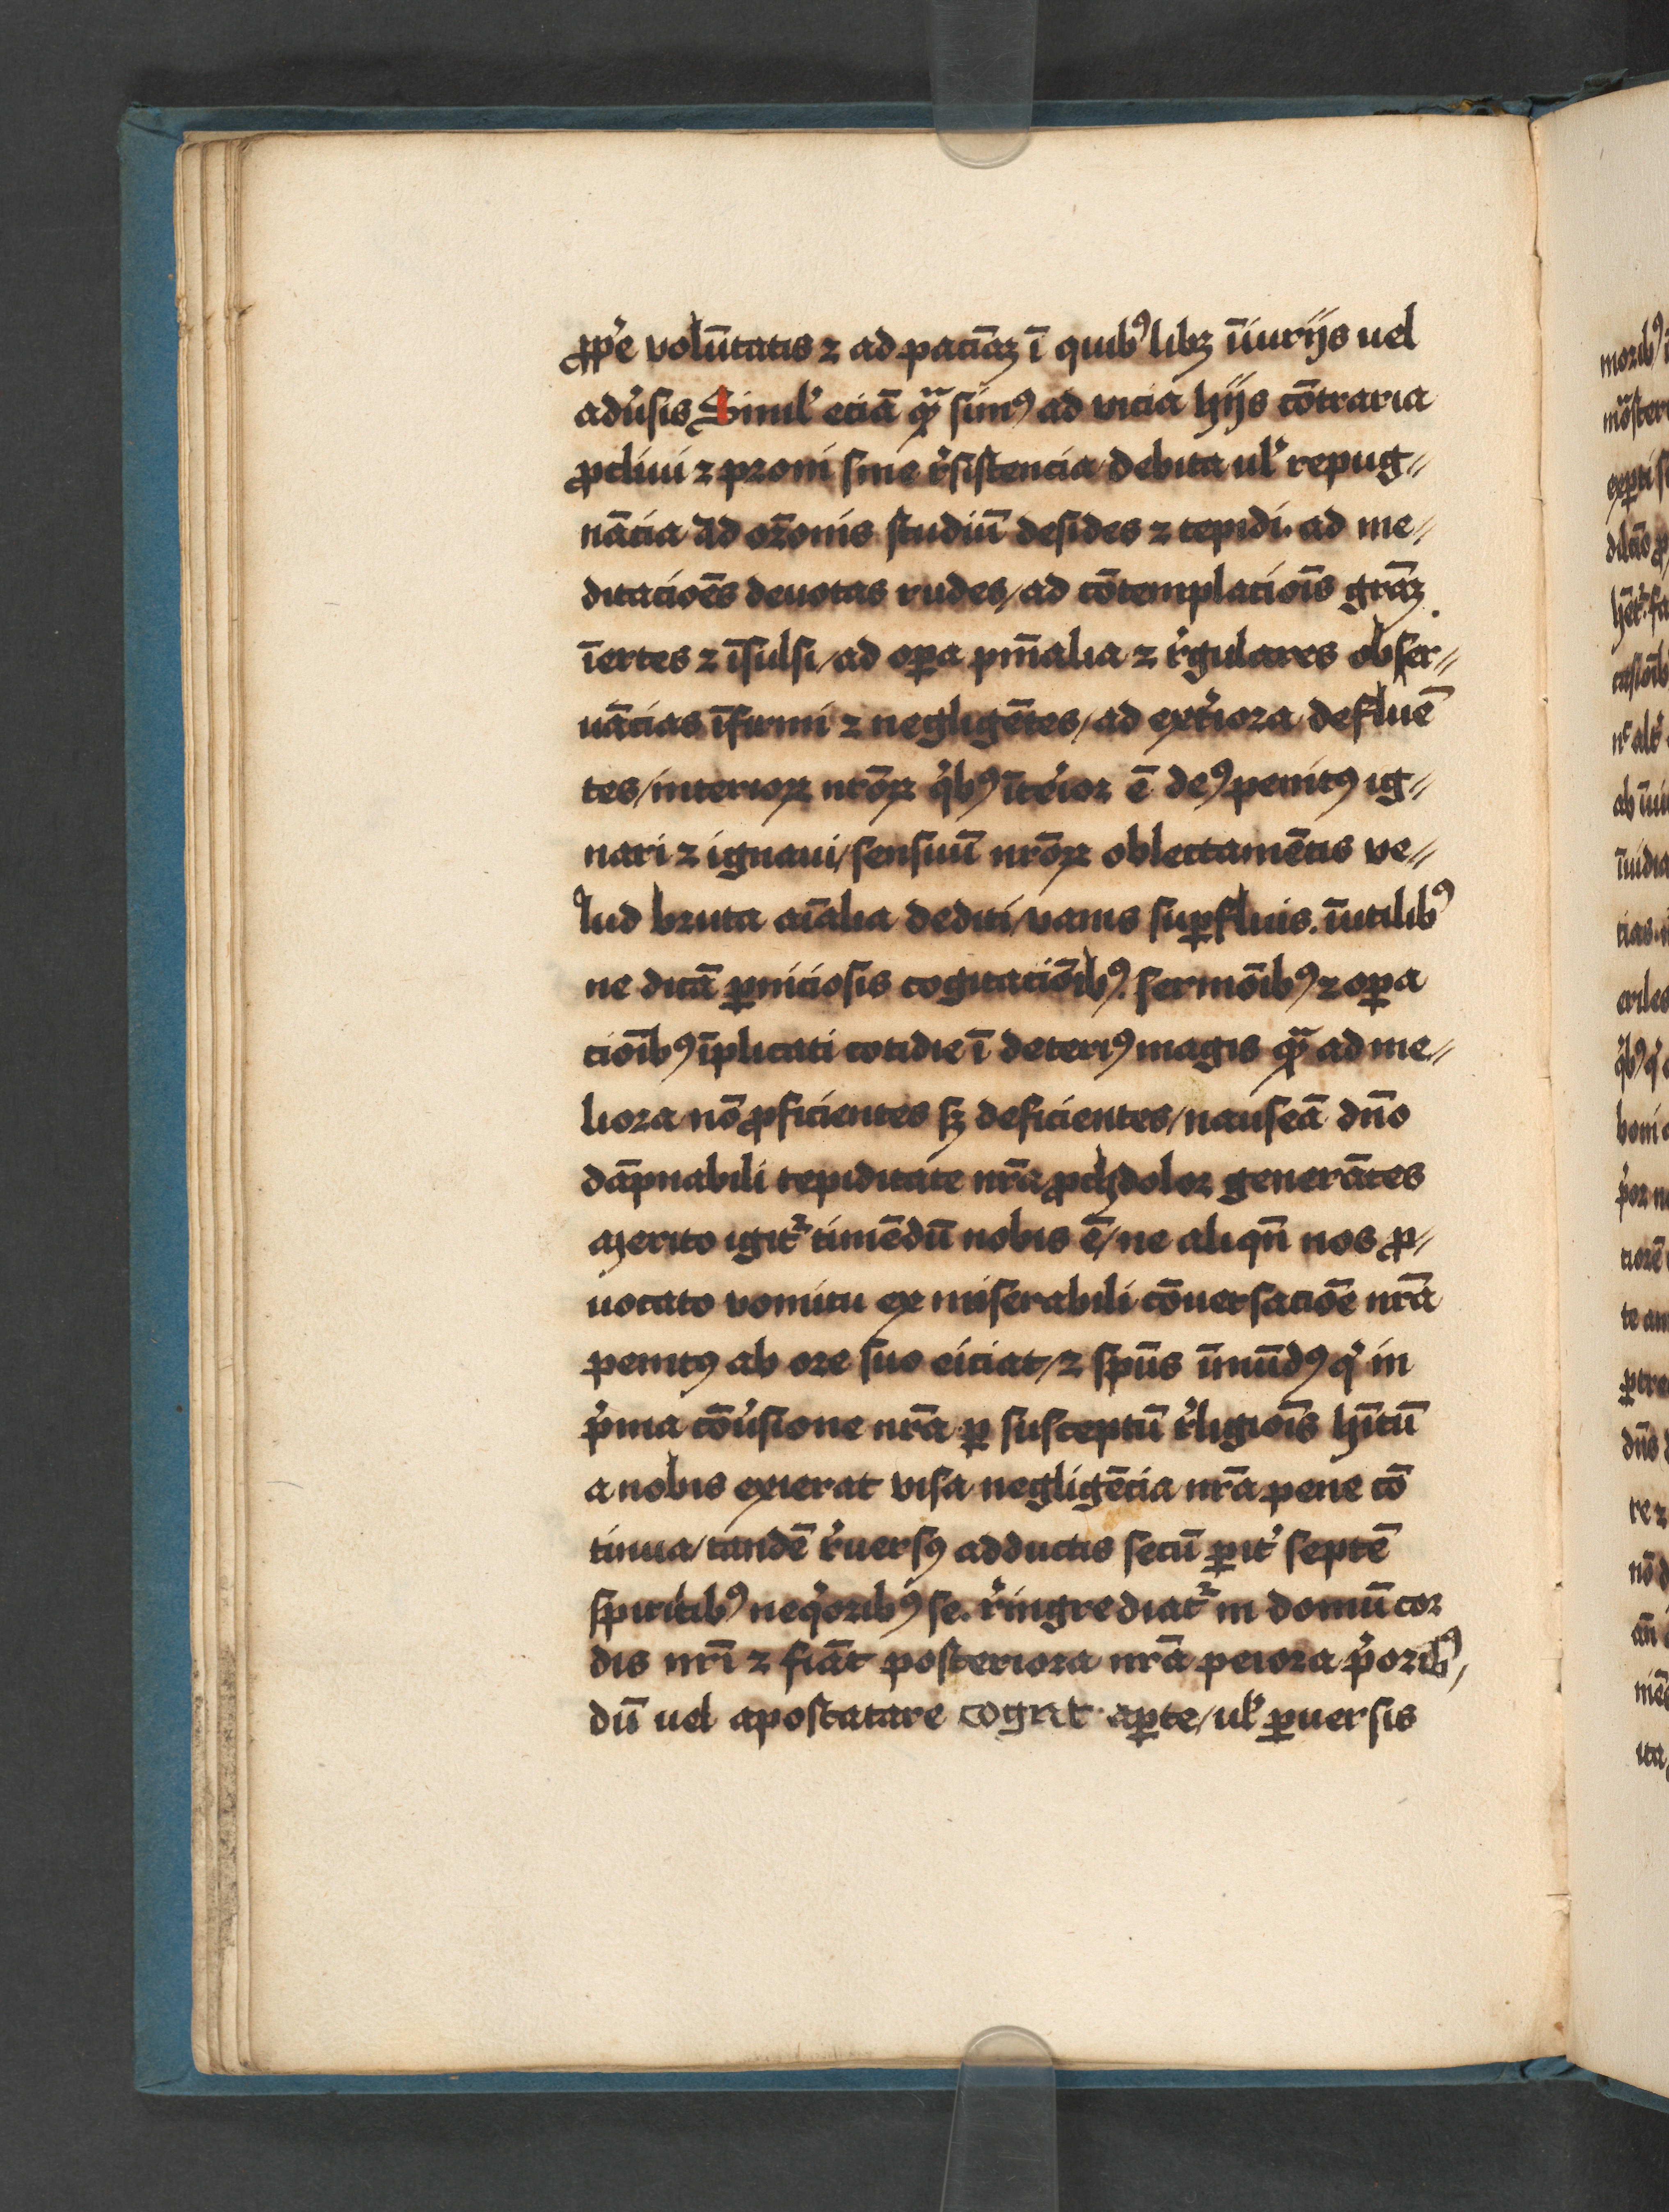 ꝓpͥe volū̄tatis ⁊ ad paciā̄ꝫ ī quibꝰlibꝫ īiurijs uel
adu̾sis Simil̾ eciā qᷓ sumꝰ ad vicia hijs cōtraria
ꝓcliui ⁊ proni sine r̾sistencia debita ul̾ repug⸗
nācia ad or̄onis studiū desides ⁊ tepidi. ad me⸗
ditacioēs deuotas rudes/ ad cōtemplacioīs grāꝫ
īertes ⁊ īsulsi/ ad oꝑa pnīalia ⁊ r̾gulares obser⸗
uācias īfirmi ⁊ negligētes/ ad ext̾iora defluē
tes/ interioꝝ nr̄oꝝ qͥbꝰ īte̾ior ē deꝰ penitꝰ ig⸗
nari ⁊ ignaui/ sensuū nr̄oꝝ oblectamētis ve⸗
lud bruta aīalia dediti/ vanis suꝑfluis. īutilibꝰ
ne dicā ꝑniciosis cogitacōībꝰ. sermōibꝰ ⁊ oꝑa
cioībꝰ īplicati cotidie ī deteriꝰ magis qᷓ ad me⸗
liora nō ꝓficientes sꝫ deficientes/ nauseā dn̄o
dāpnabili tepiditate nr̄a ꝓchdolor generātes
Merito igit᷑ timēdū nobis ē/ ne aliqn̄ nos ꝓ⸗
uocato vomitu ex miserabili cōuersacōe nr̄a
penitꝰ ab ore suo eiciat/ ⁊ spūs īmūdꝰ qͥ in
pͥma cōu̾sione nr̄a ꝑ susceptū r̾ligioīs hītū
a nobis exierat visa negligēcia nr̄a pene cō
tinua/ tandē r̾uersꝰ adductis secū ꝑit̾ septē
spiritibꝰ neqͥoribꝰ se. r̾ingrediat᷑ in domū cor
dis nr̄i ⁊ fiāt posteriora nr̄a peiora pͥoribꝰ/
dū uel apostatare cogit aꝑte/ ul̾ ꝑuersis